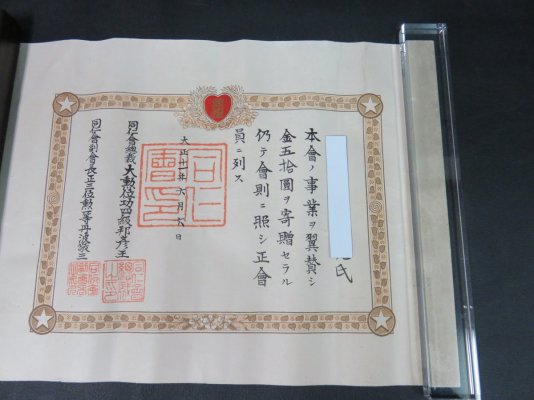 氏
本會ノ事業ヲ翼賛シ
金五拾圓ヲ寄贈セラル
仍テ會則ニ照シ正會
員ニ列ス
大正十一年六月六日
同仁會印
同仁會總裁大勲位功四級邦彦王
同仁會副會長正三位勲一等丹波敬三